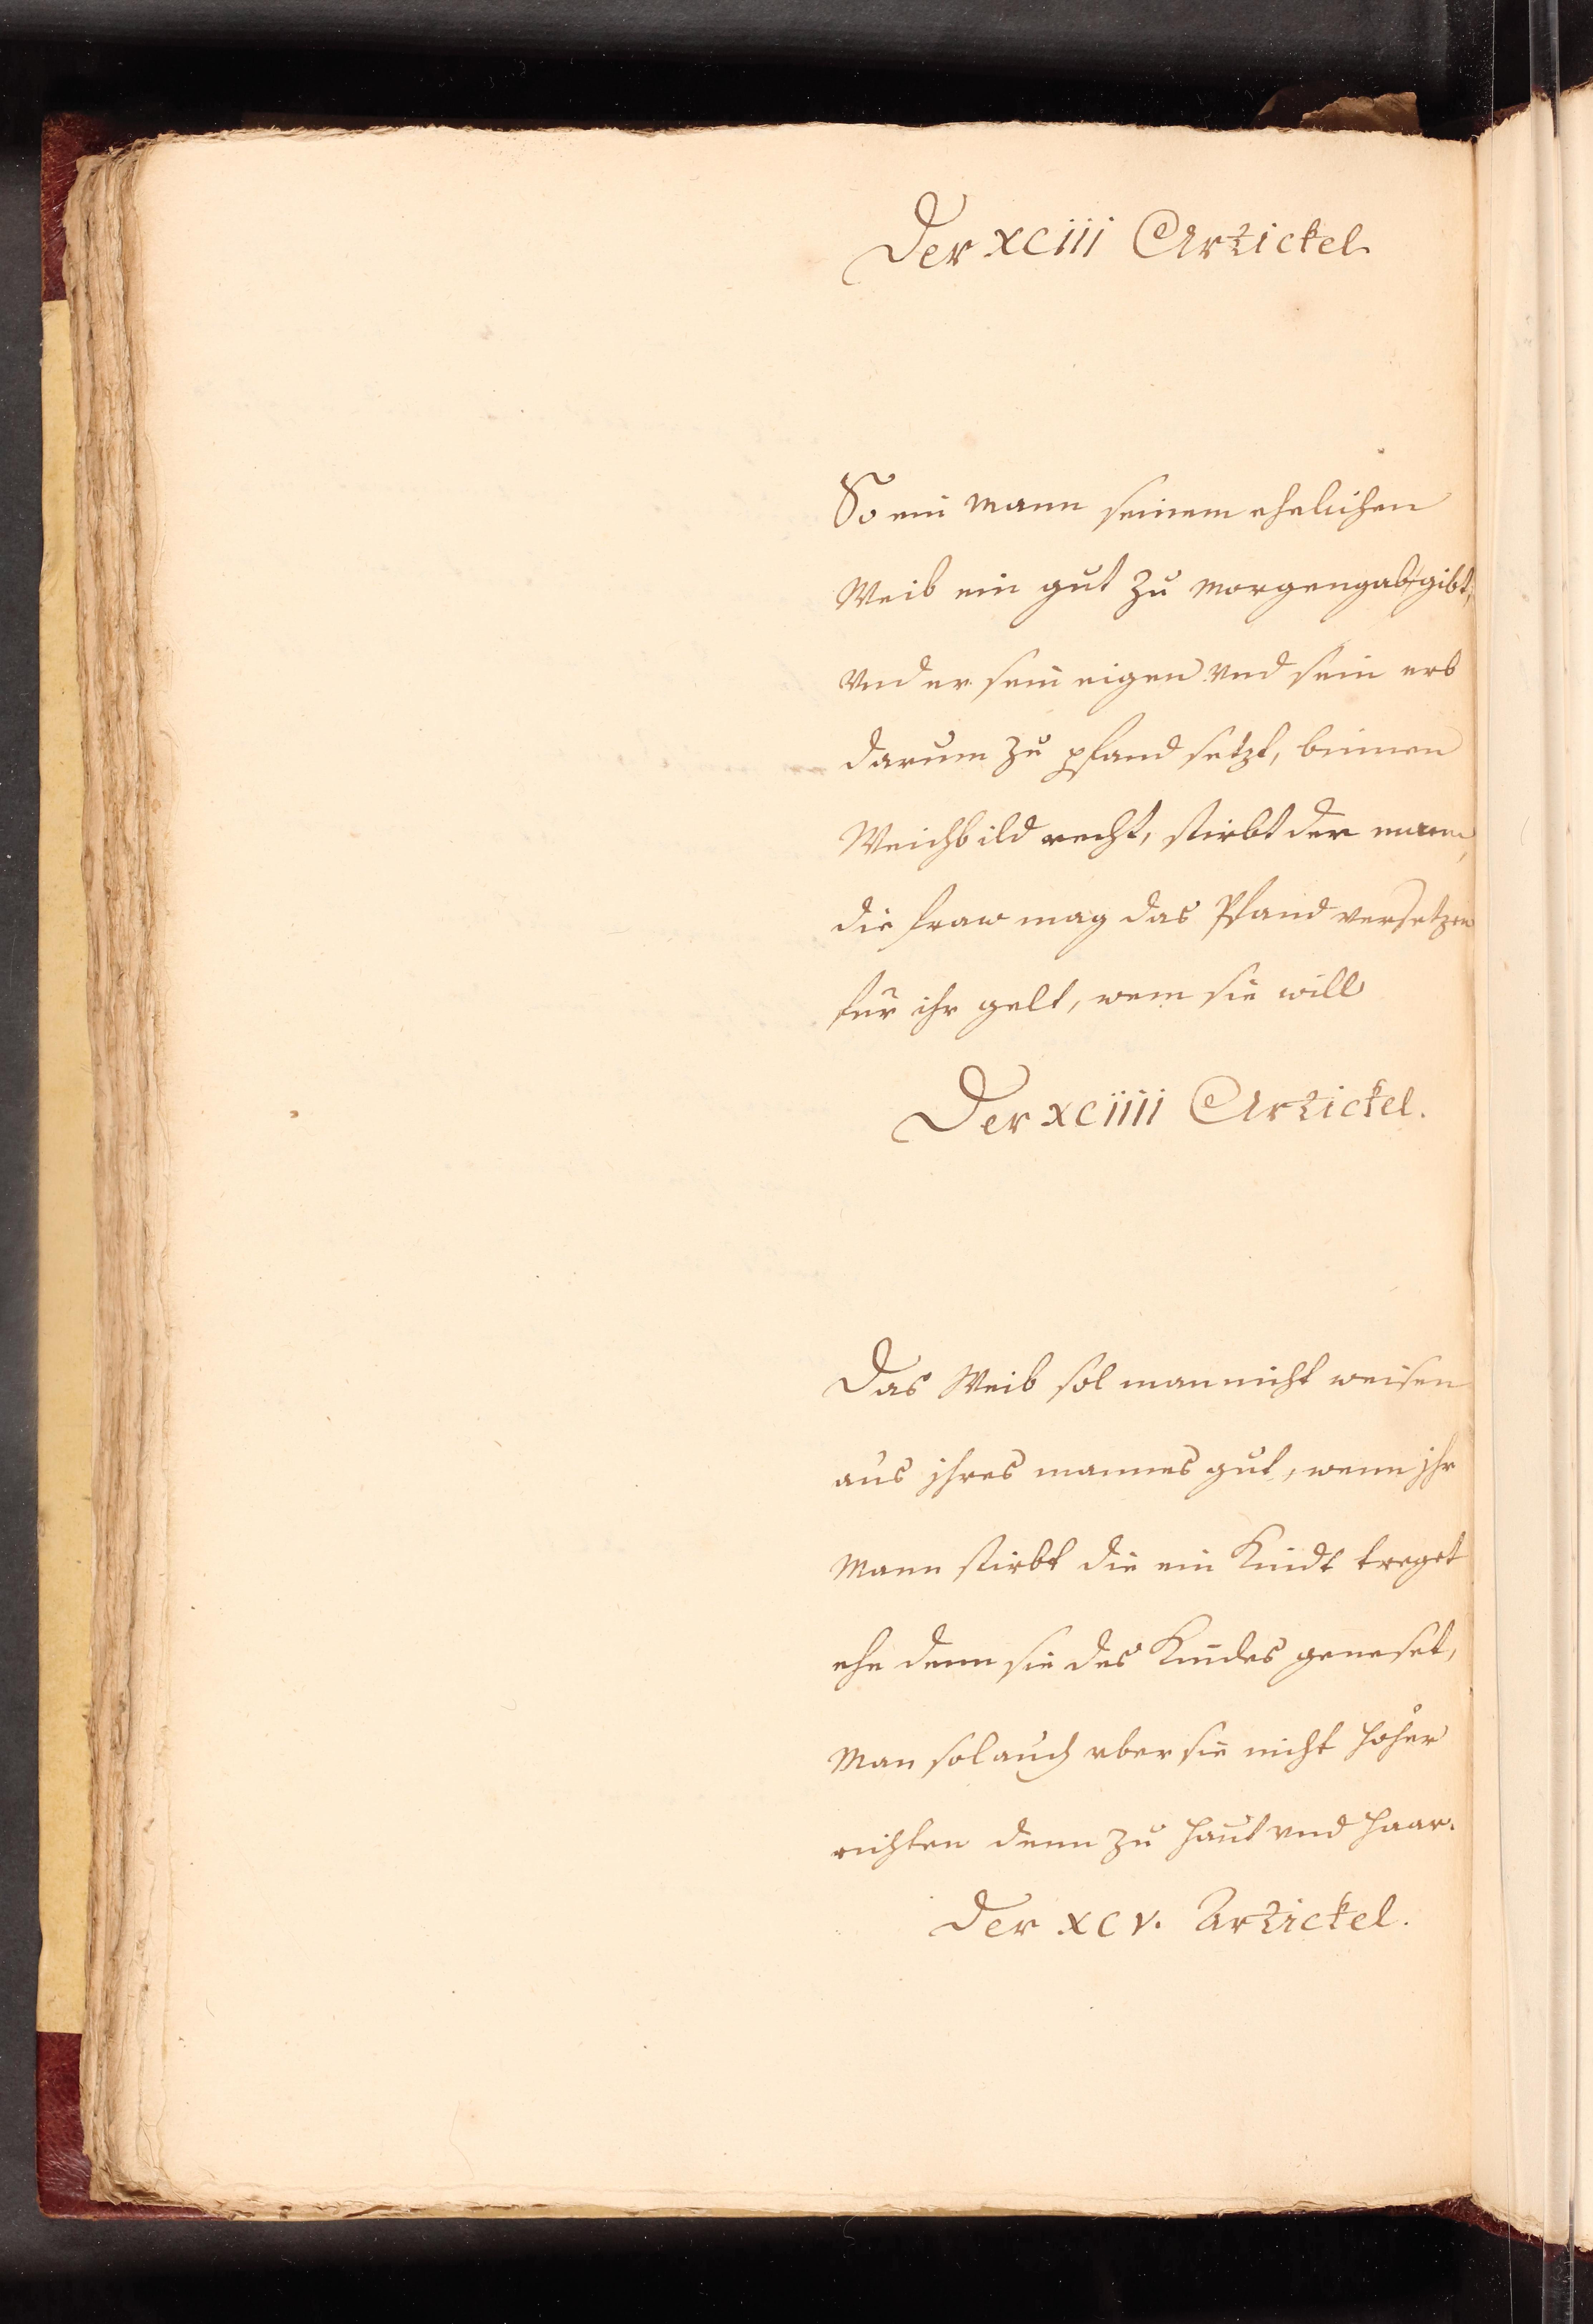 Der XCIII Artickel.
So ein Mann seinem ehelichen
Weib ein gut zu morgengab gibt,
vnd er sein eigen vnd sein erb
darum zu pfand setzt, binnen
Weichbild recht, stirbt der mann,
die fraw mag das Pfand versetzen
für ihr gelt, wem sie will
Der XCIIII Artickel.
Das Weib sol man nicht weisen
aus ihres mannes gut, wenn ihr
Mann stirbt die ein Kindt treget
ehe denn sie des Kindes geneset,
Man sol auch vber sie nicht höher
richten denn zu haut vnd haar.
Der XCV. Artickel.